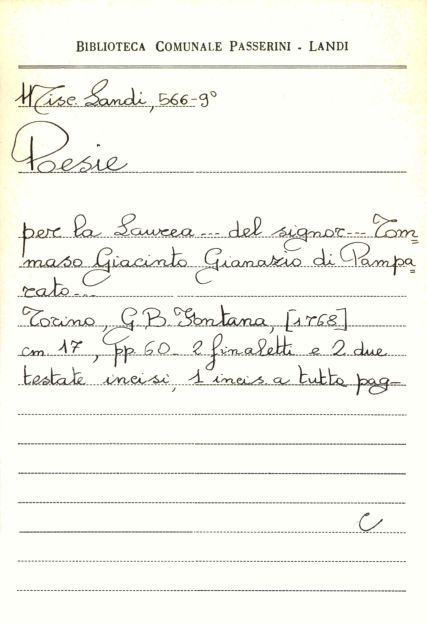 BIBLIOTECA COMUNALE PASSERINI - LANDI
Misc. Landi, 566-9°
Poesie
per la Laurea ... del signor ... Tom=
maso Giacinto Gianazio di Pampa=
rato ...
Torino, G.B. Fontana, [1768]
cm 17, pp 60 - 2 finaletti e 2 due
testate incisi, 1 incis. a tutta pag-
C